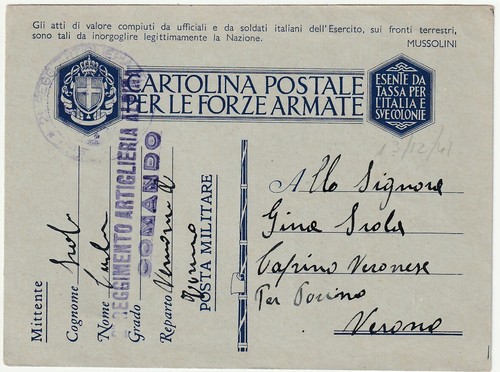 Gli atti di valore compiuti da ufficiali e da soldati italiani dell'Esercito, sui fronti terrestri,
sono tali da inorgoglire legittimamente la Nazione.
MUSSOLINI
CARTOLINA POSTALE
PER LE FORZE ARMATE
ESENTE DA
TASSA PER
L'ITALIA E
SVE COLONIE
13/12/41
REGGIMENTO ARTIGLIERIA ALPINA
COMANDO
Mittente
Cognome
Nome
Grado
Reparto
POSTA MILITARE
Alla Signora
Gina
Caprino Veronese
Per
Verona